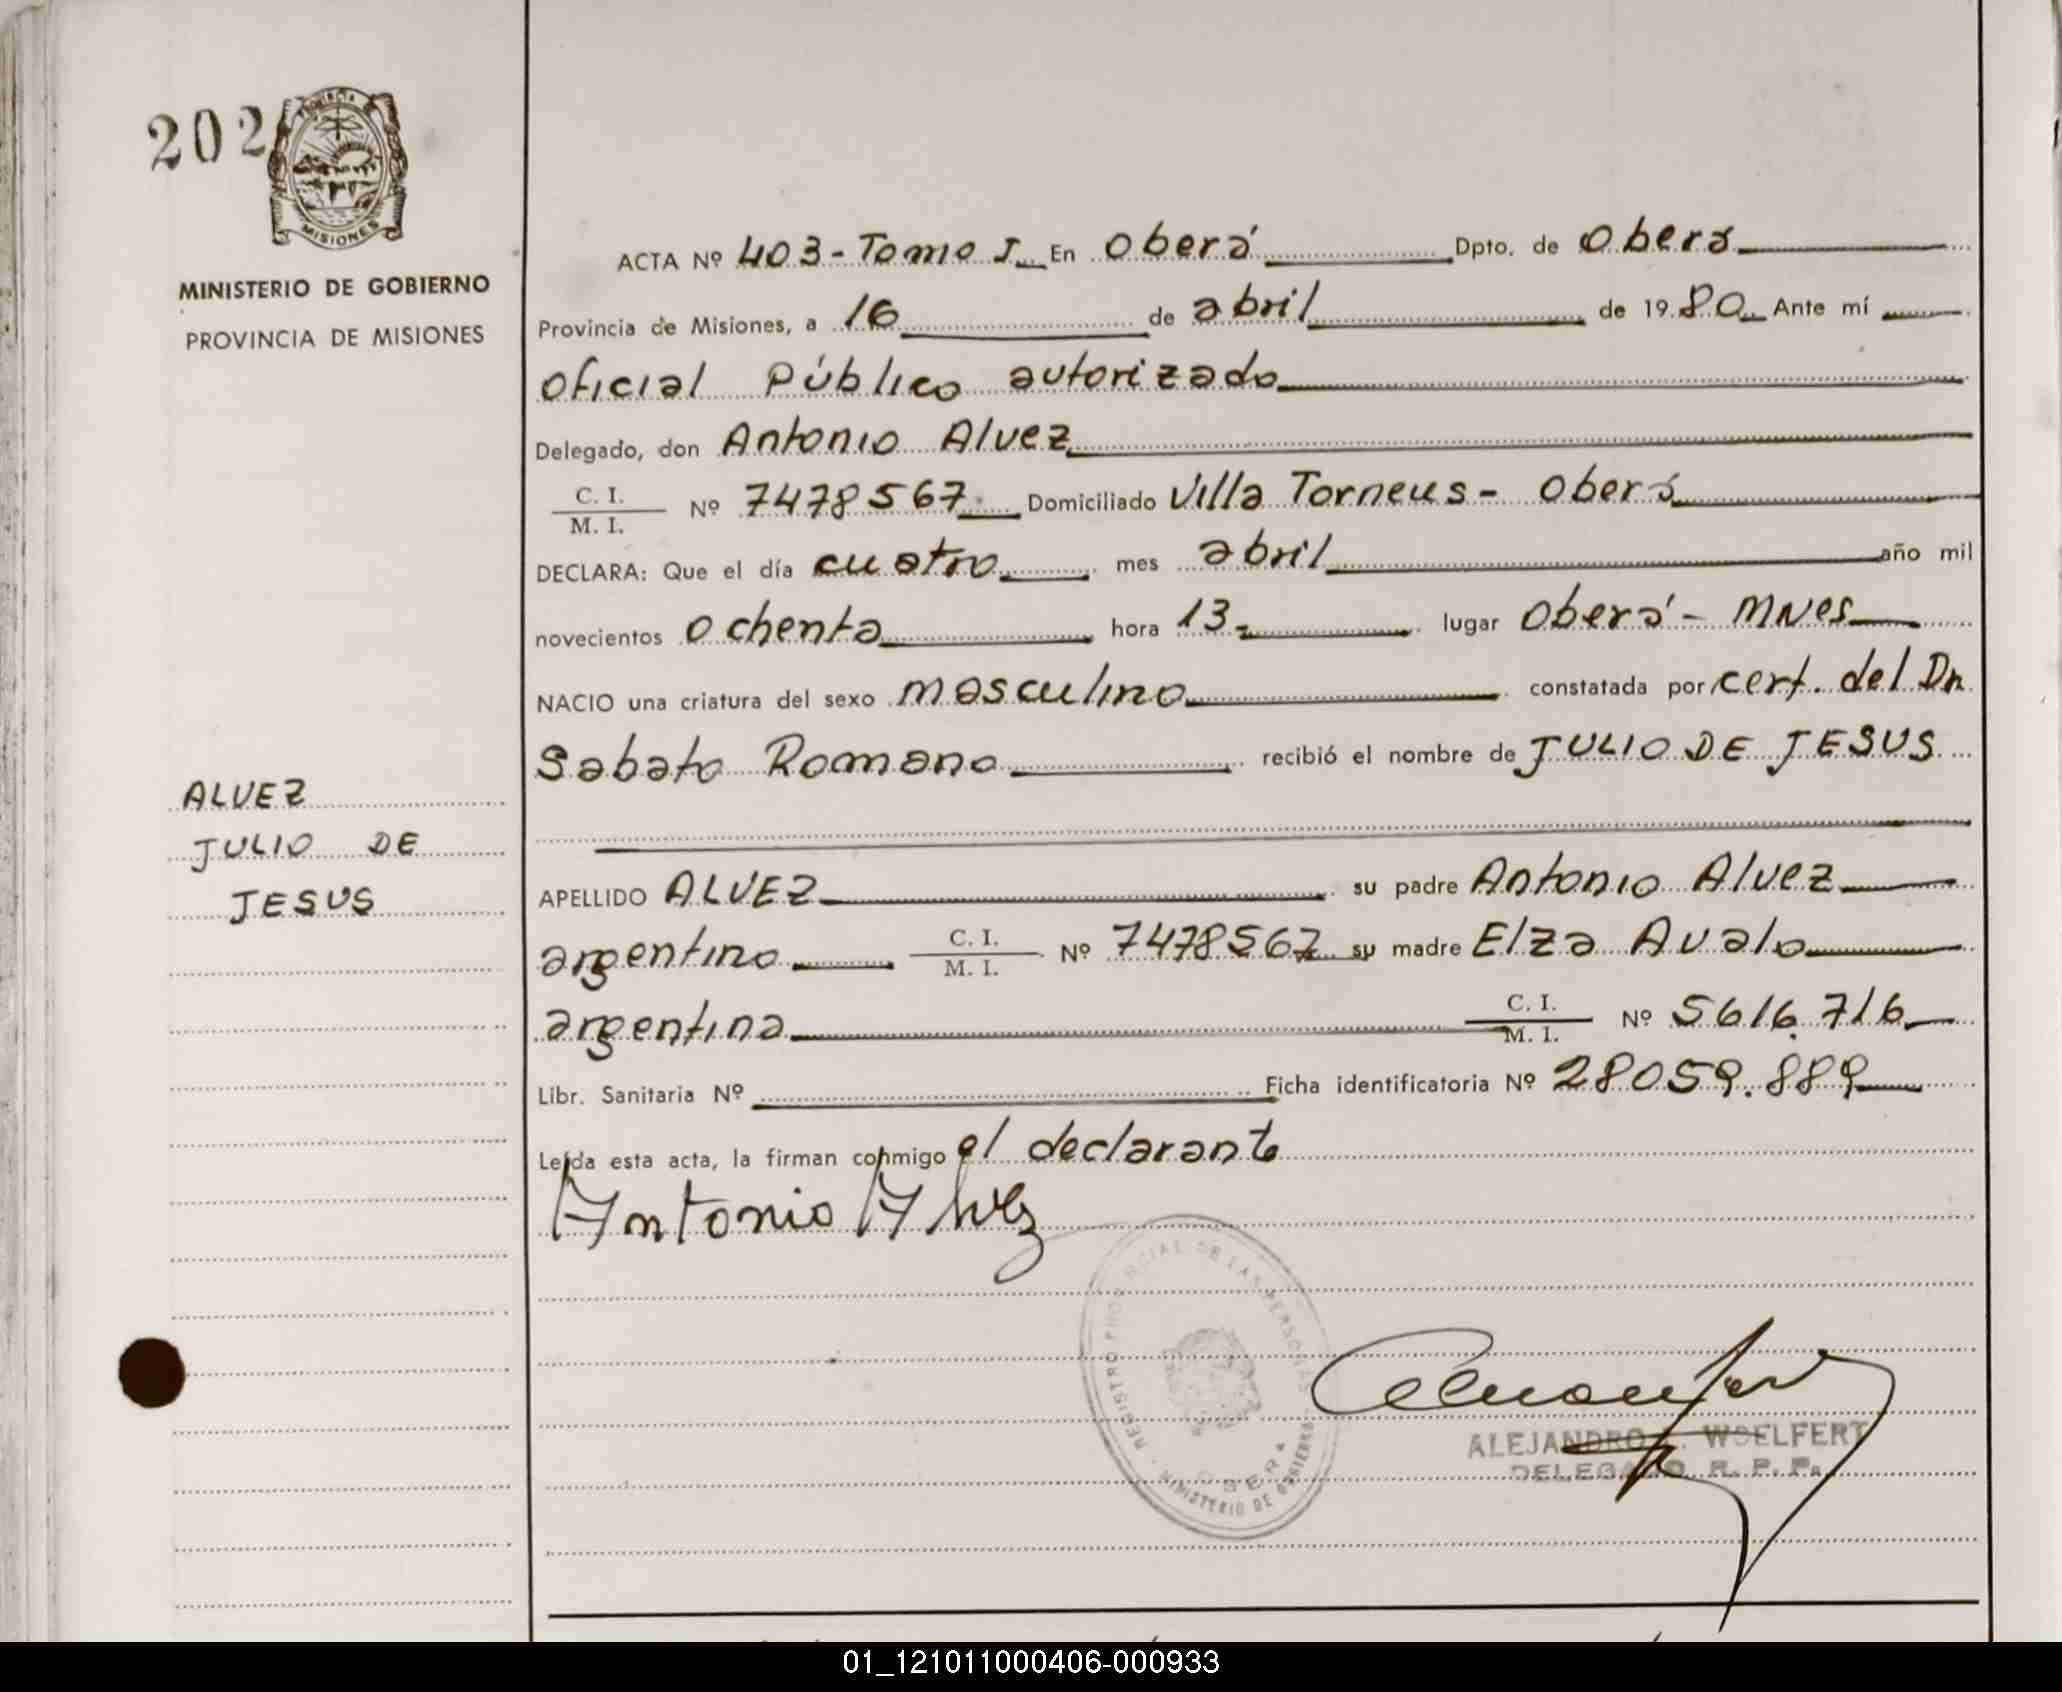 202
PROVINCIA
MISIONES
MINISTERIO DE GOBIERNO
PROVINCIA DE MISIONES
ALVEZ
JULIO DE
JESUS
ACTA Nº 403 - Tomo I En Oberá Dpto. de Oberá
Provincia de Misiones, a 16 de abril de 1980 Ante mí
Oficial Público autorizado
Delegado, don Antonio Alvez
C. I.
M. I. Nº 7478567 Domiciliado Villa Torneus - Oberá
DECLARA: Que el día cuatro mes abril año mil
novecientos ochenta hora 13 lugar Oberá - MNes
NACIO una criatura del sexo masculino constatada por cert. del Dr
Sabato Romano recibió el nombre de JULIO DE JESUS
APELLIDO ALVEZ su padre Antonio Alvez
argentino C. I. M. I. Nº 7478567 su madre Elza Avalo
argentina C. I. M. I. Nº 5616.716
Libr. Sanitaria Nº Ficha identificatoria Nº 28059.889
Leída esta acta, la firman conmigo el declarante
Antonio Alvez
REGISTRO PROVINCIAL DE LAS PERSONAS
OBERA
MINISTERIO DE GOBIERNO
ALEJANDRO WOELFERT
DELEGADO R. P. P.
01_121011000406-000933